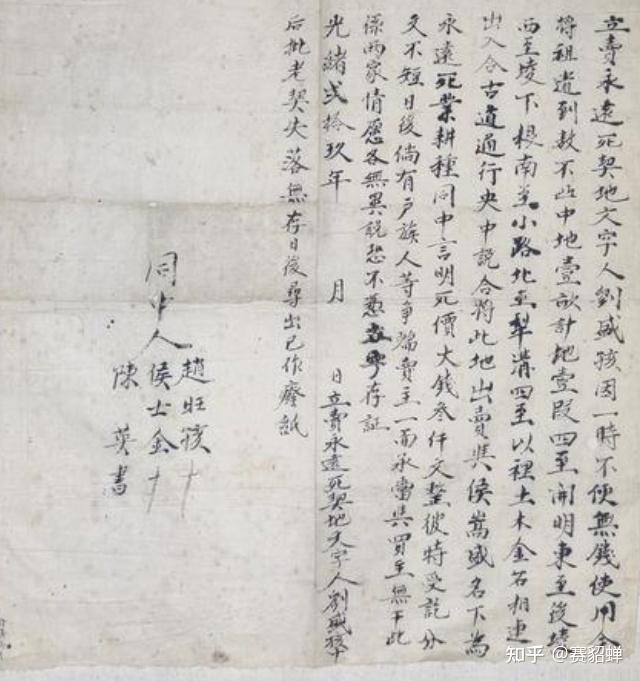 立賣永遠死契地文字人劉盛孩因一時不便無錢使用今
將祖遺到敖不凸中地壹畝計地壹段四至開明東至後塄
西至堎下根南至小路北至犁溝四至以裡土木金石相連
出入合古道通行央中説合將此地出賣與侯嵩盛名下為
永遠死業耕種同中言明死價大錢叁仟文整彼時受訖分
文不短日後倘有户族人等爭端賣主一面承當與買主無干此
係兩家情愿各無異説恐不憑立字存証
光緒弍拾玖年 月 日立賣永遠死契地文字人劉盛孩
后批老契失落無存日後尋出已作廢紙
同中人
趙旺孩
侯士金
陳英書
知乎 @赛貂蝉